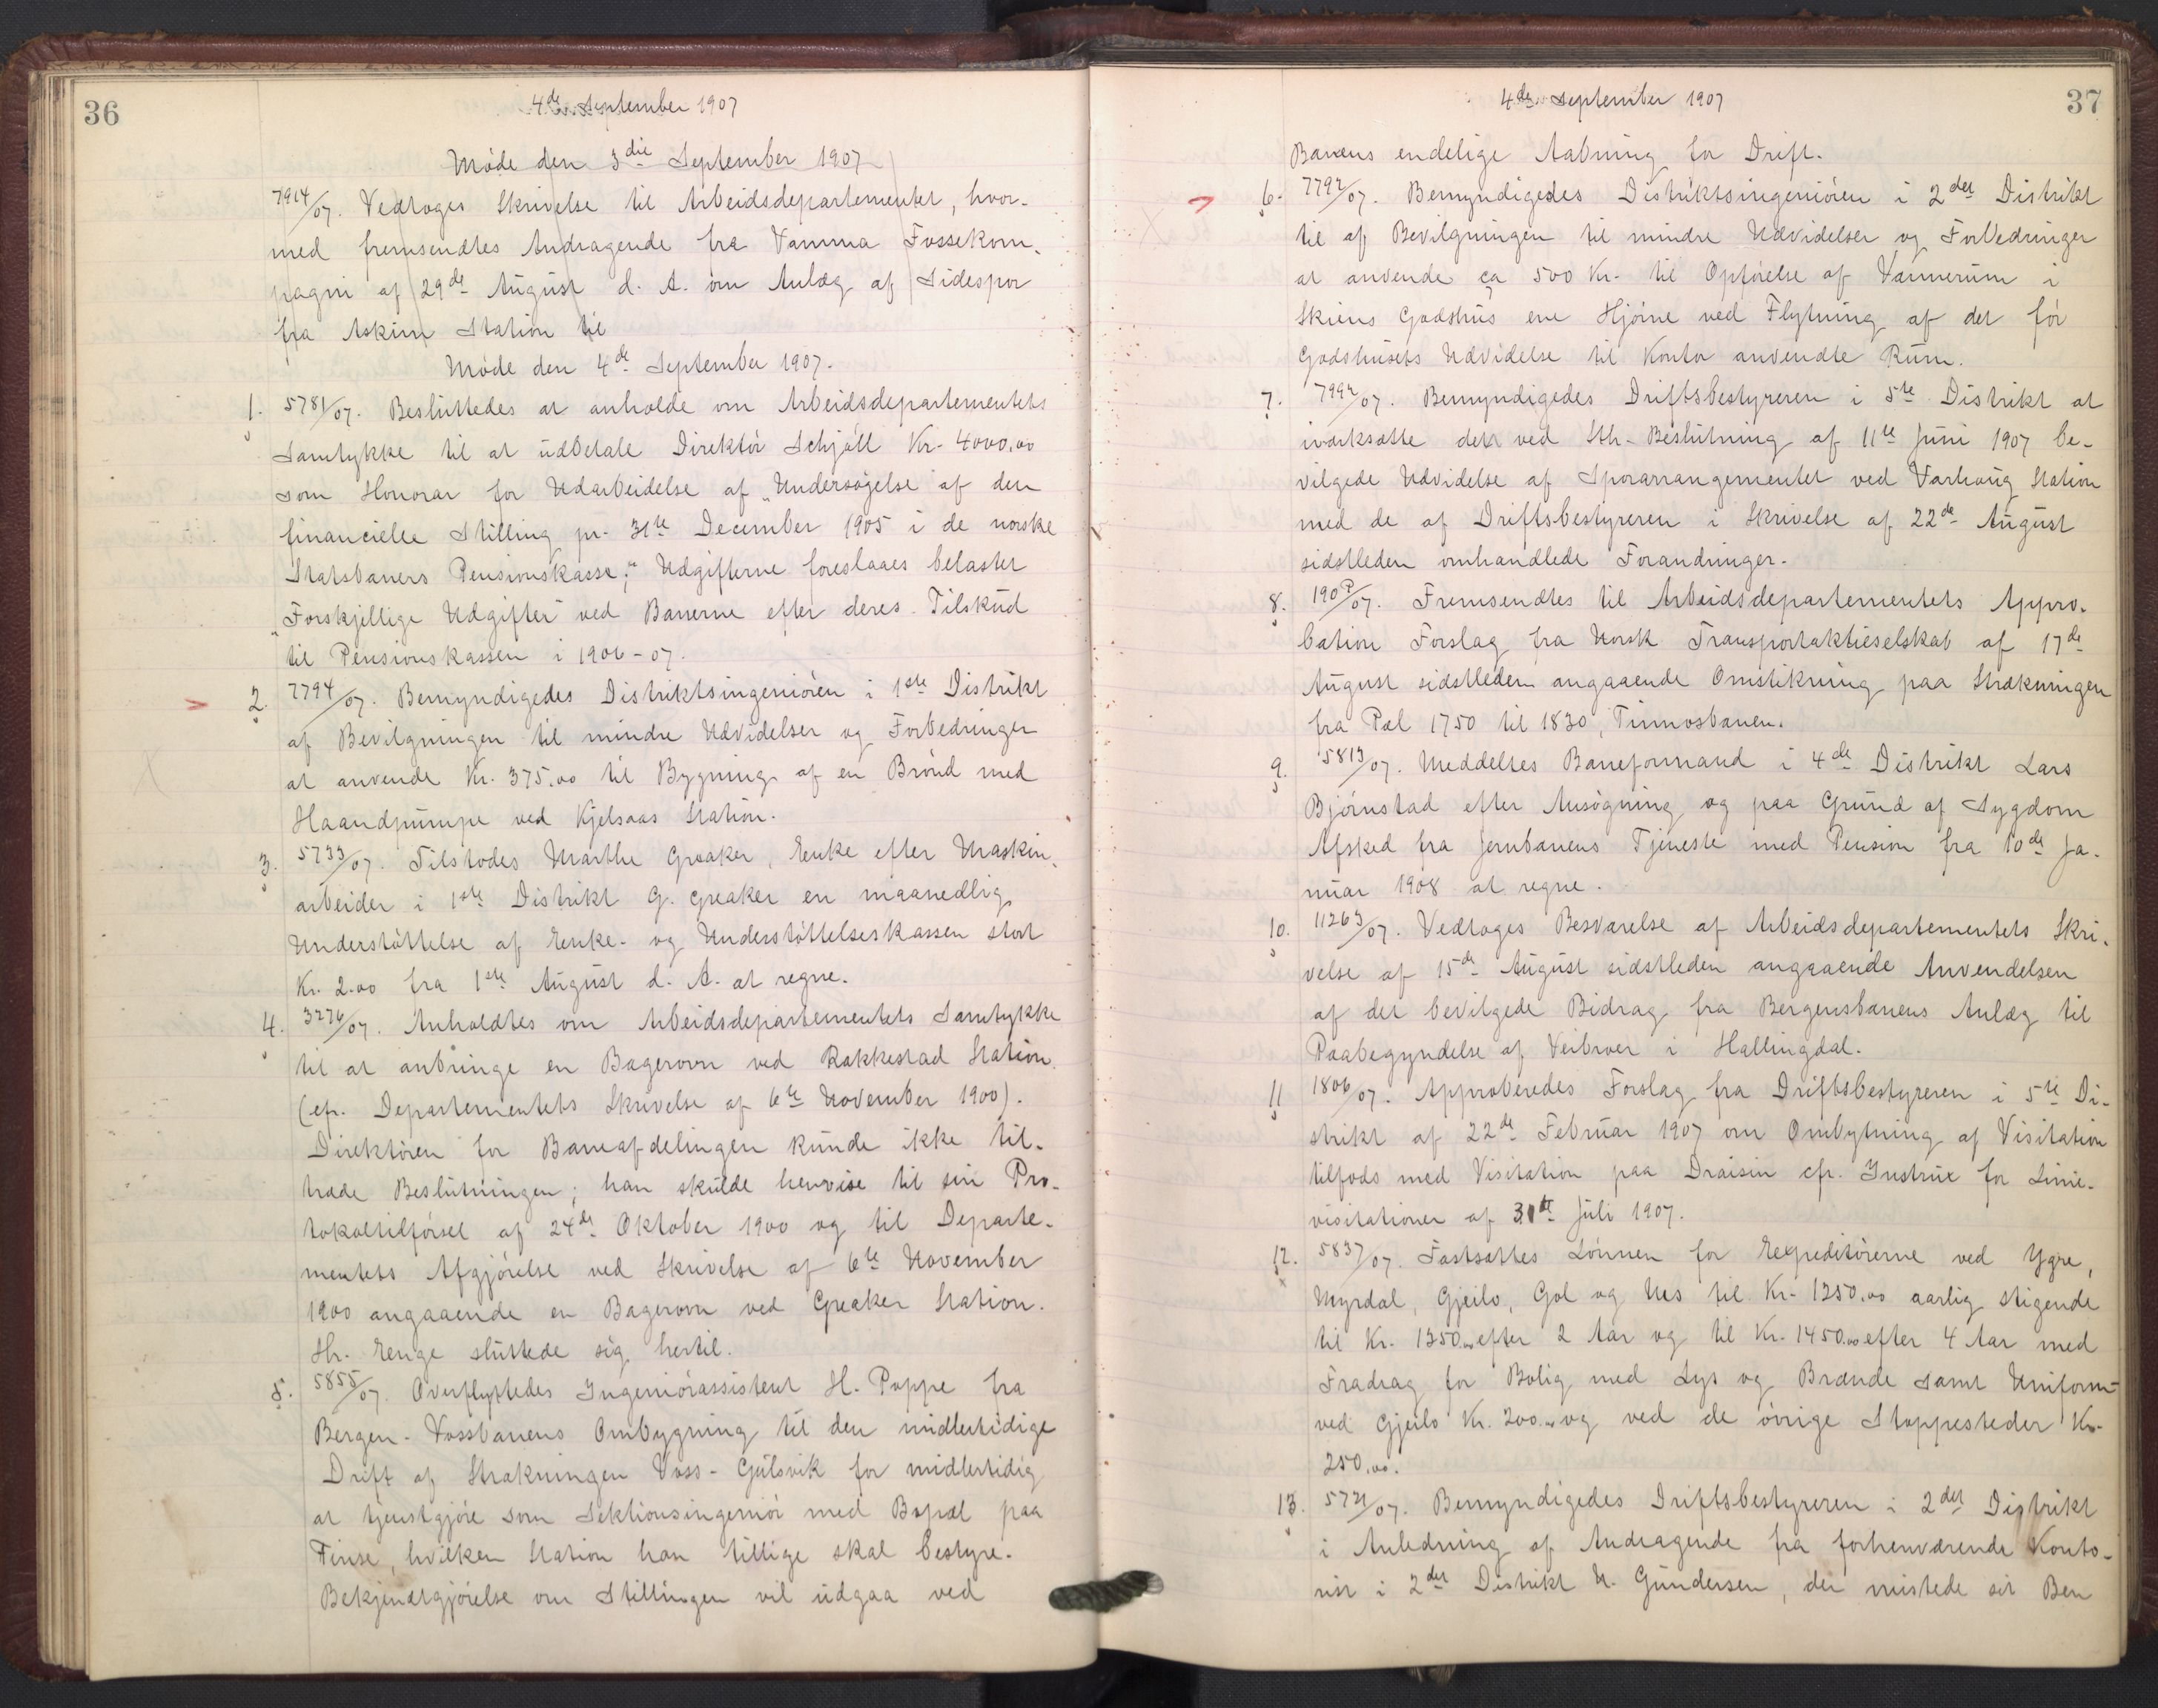 36
4de September 1907
Møde den 3die September 1907
7914/07. Vedtoges Skrivelse til Arbeidsdepartementet, hvor-
med fremsendtes Andragende fra Vamma Fossekom-
pagni af 29de August d. A. om Anlæg af Sidespor
fra Askim Station til
Møde den 4de September 1907.
1. 5781/07. Besluttedes at anholde om Arbeidsdepartementets
Samtykke til at udbetale Direktør Schjøll Kr. 4000,00
som Honorar for Udarbeidelse af „Undersøgelse af den
financielle Stilling pr. 31te December 1905 i de norske
Statsbaners Pensionskasse;" Udgifterne foreslaaes belastet
„Forskjellige Udgifter" ved Banerne efter deres Tilskud
til Pensionskassen i 1906-07.
2. 7794/07. Bemyndigedes Distriktsingeniøren i 1ste Distrikt
af Bevilgningen til mindre Udvidelser og Forbedringer
at anvende Kr. 375.00 til Bygning af en Brønd med
Haandpumpe ved Kjelsaas Station.
3. 5733/07. Tilstodes Marthe Greaker, Enke efter Maskin-
arbeider i 1ste Distrikt G. Greaker en maanedlig
Understøttelse af Enke- og Understøttelseskassen stort
Kr. 2.00 fra 1ste August d. A. at regne.
4. 3276/07. Anholdtes om Arbeidsdepartementets Samtykke
til at anbringe en Bagerovn ved Rakkestad Station
(cfr. Departementets Skrivelse af 6te November 1900).
Direktøren for Baneafdelingen kunde ikke til-
træde Beslutningen; han skulde henvise til sin Pro-
tokoltilførsel af 24de Oktober 1900 og til Departe-
mentets Afgjørelse ved Skrivelse af 6te November
1900 angaaende en Bagerovn ved Greaker Station.
Hr. Enge sluttede sig hertil.
5. 5855/07. Overflyttedes Ingeniørassistent H. Poppe fra
Bergen-Vossbanens Ombygning til den midlertidige
Drift af Strækningen Voss-Gulsvik for midlertidig
at tjenstgjøre som Sektionsingeniør med Bopæl paa
Finse, hvilken Station han tillige skal bestyre.
Bekjendtgjørelse om Stillingen vil udgaa ved
37
4de September 1907
Banens endelige Aabning for Drift.
6. 7792/07. Bemyndigedes Distriktsingeniøren i 2det Distrikt
til af Bevilgningen til mindre Udvidelser og Forbedringer
at anvende ca 500 Kr. til Opførelse af Varmerum i
Skiens Godshus ene Hjørne ved Flytning af det før
Godshusets Udvidelse til Kontor anvendte Rum.
7. 7992/07. Bemyndigedes Driftsbestyreren i 5te Distrikt at
iværksætte den ved Sth-Beslutning af 11te Juni 1907 be-
vilgede Udvidelse af Sporarrangementet ved Varhoug Station
med de af Driftsbestyreren i Skrivelse af 22de August
sidstleden omhandlede Forandringer.
8. 190P/07. Fremsendtes til Arbeidsdepartementets Appro-
bation Forslag fra Norsk Transportaktieselskab af 17de
August sidstleden angaaende Omstikning paa Strækningen
fra Pæl 1750 til 1830, Tinnosbanen.
9. 5813/07. Meddeltes Baneformand i 4de Distrikt Lars
Bjørnstad efter Ansøgning og paa Grund af Sygdom
Afsked fra Jernbanens Tjeneste med Pension fra 10de Ja-
nuar 1908 at regne.
10. 11263/07. Vedtoges Besvarelse af Arbeidsdepartementets Skri-
velse af 15de August sidstleden angaaende Anvendelsen
af det bevilgede Bidrag fra Bergensbanens Anlæg til
Paabegyndelse af Veibroer i Hallingdal.
11 1806/07. Approberedes Forslag fra Driftsbestyreren i 5te Di-
strikt af 22de Februar 1907 om Ombytning af Visitation
tilfods med Visitation paa Draisin cfr. Instrux for Linie-
visitationer af 31te Juli 1907.
12. 5837/07. Fastsattes Lønnen for Expeditørerne ved Ygre,
Myrdal, Gjeilo, Gol og Nes til Kr. 1250.00 aarlig stigende
til Kr. 1350.00 efter 2 Aar og til Kr. 1450.00 efter 4 Aar med
Fradrag for Bolig med Lys og Brænde samt Uniform
ved Gjeilo Kr. 200.00 og ved de øvrige Stoppesteder Kr.
250.00.
13. 5721/07. Bemyndigedes Driftsbestyreren i 2det Distrikt
i Anledning af Andragende fra forhenværende Konto-
rist i 2det Distrikt N. Gundersen, der mistede sit Ben